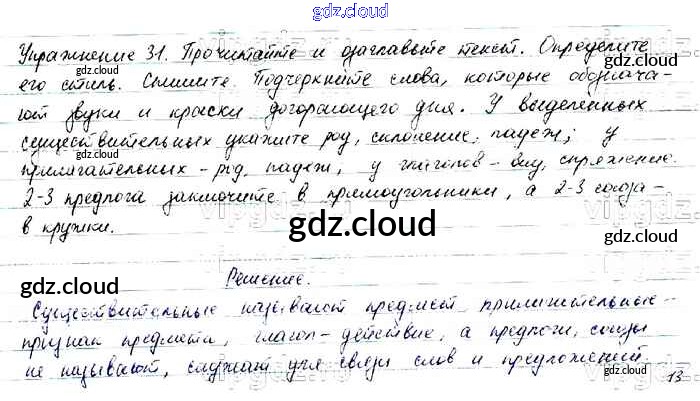 gdz.cloud
Упражнение 31. Прочитайте и озаглавьте текст. Определите
его стиль. Спишите. Подчеркните слова, которые обознача-
ют звуки и краски догорающего дня. У выделенных
существительных укажите род, склонение, падеж; у
прилагательных - род, падеж, у глаголов - вид, спряжение.
2-3 предлога заключите в прямоугольники, а 2-3 союза -
в кружки.
gdz.cloud
Решение.
Существительные называют предмет, прилагательные -
признак предмета, глагол - действие, а предлоги, союзы
не называют, служат для связи слов и предложений.
13